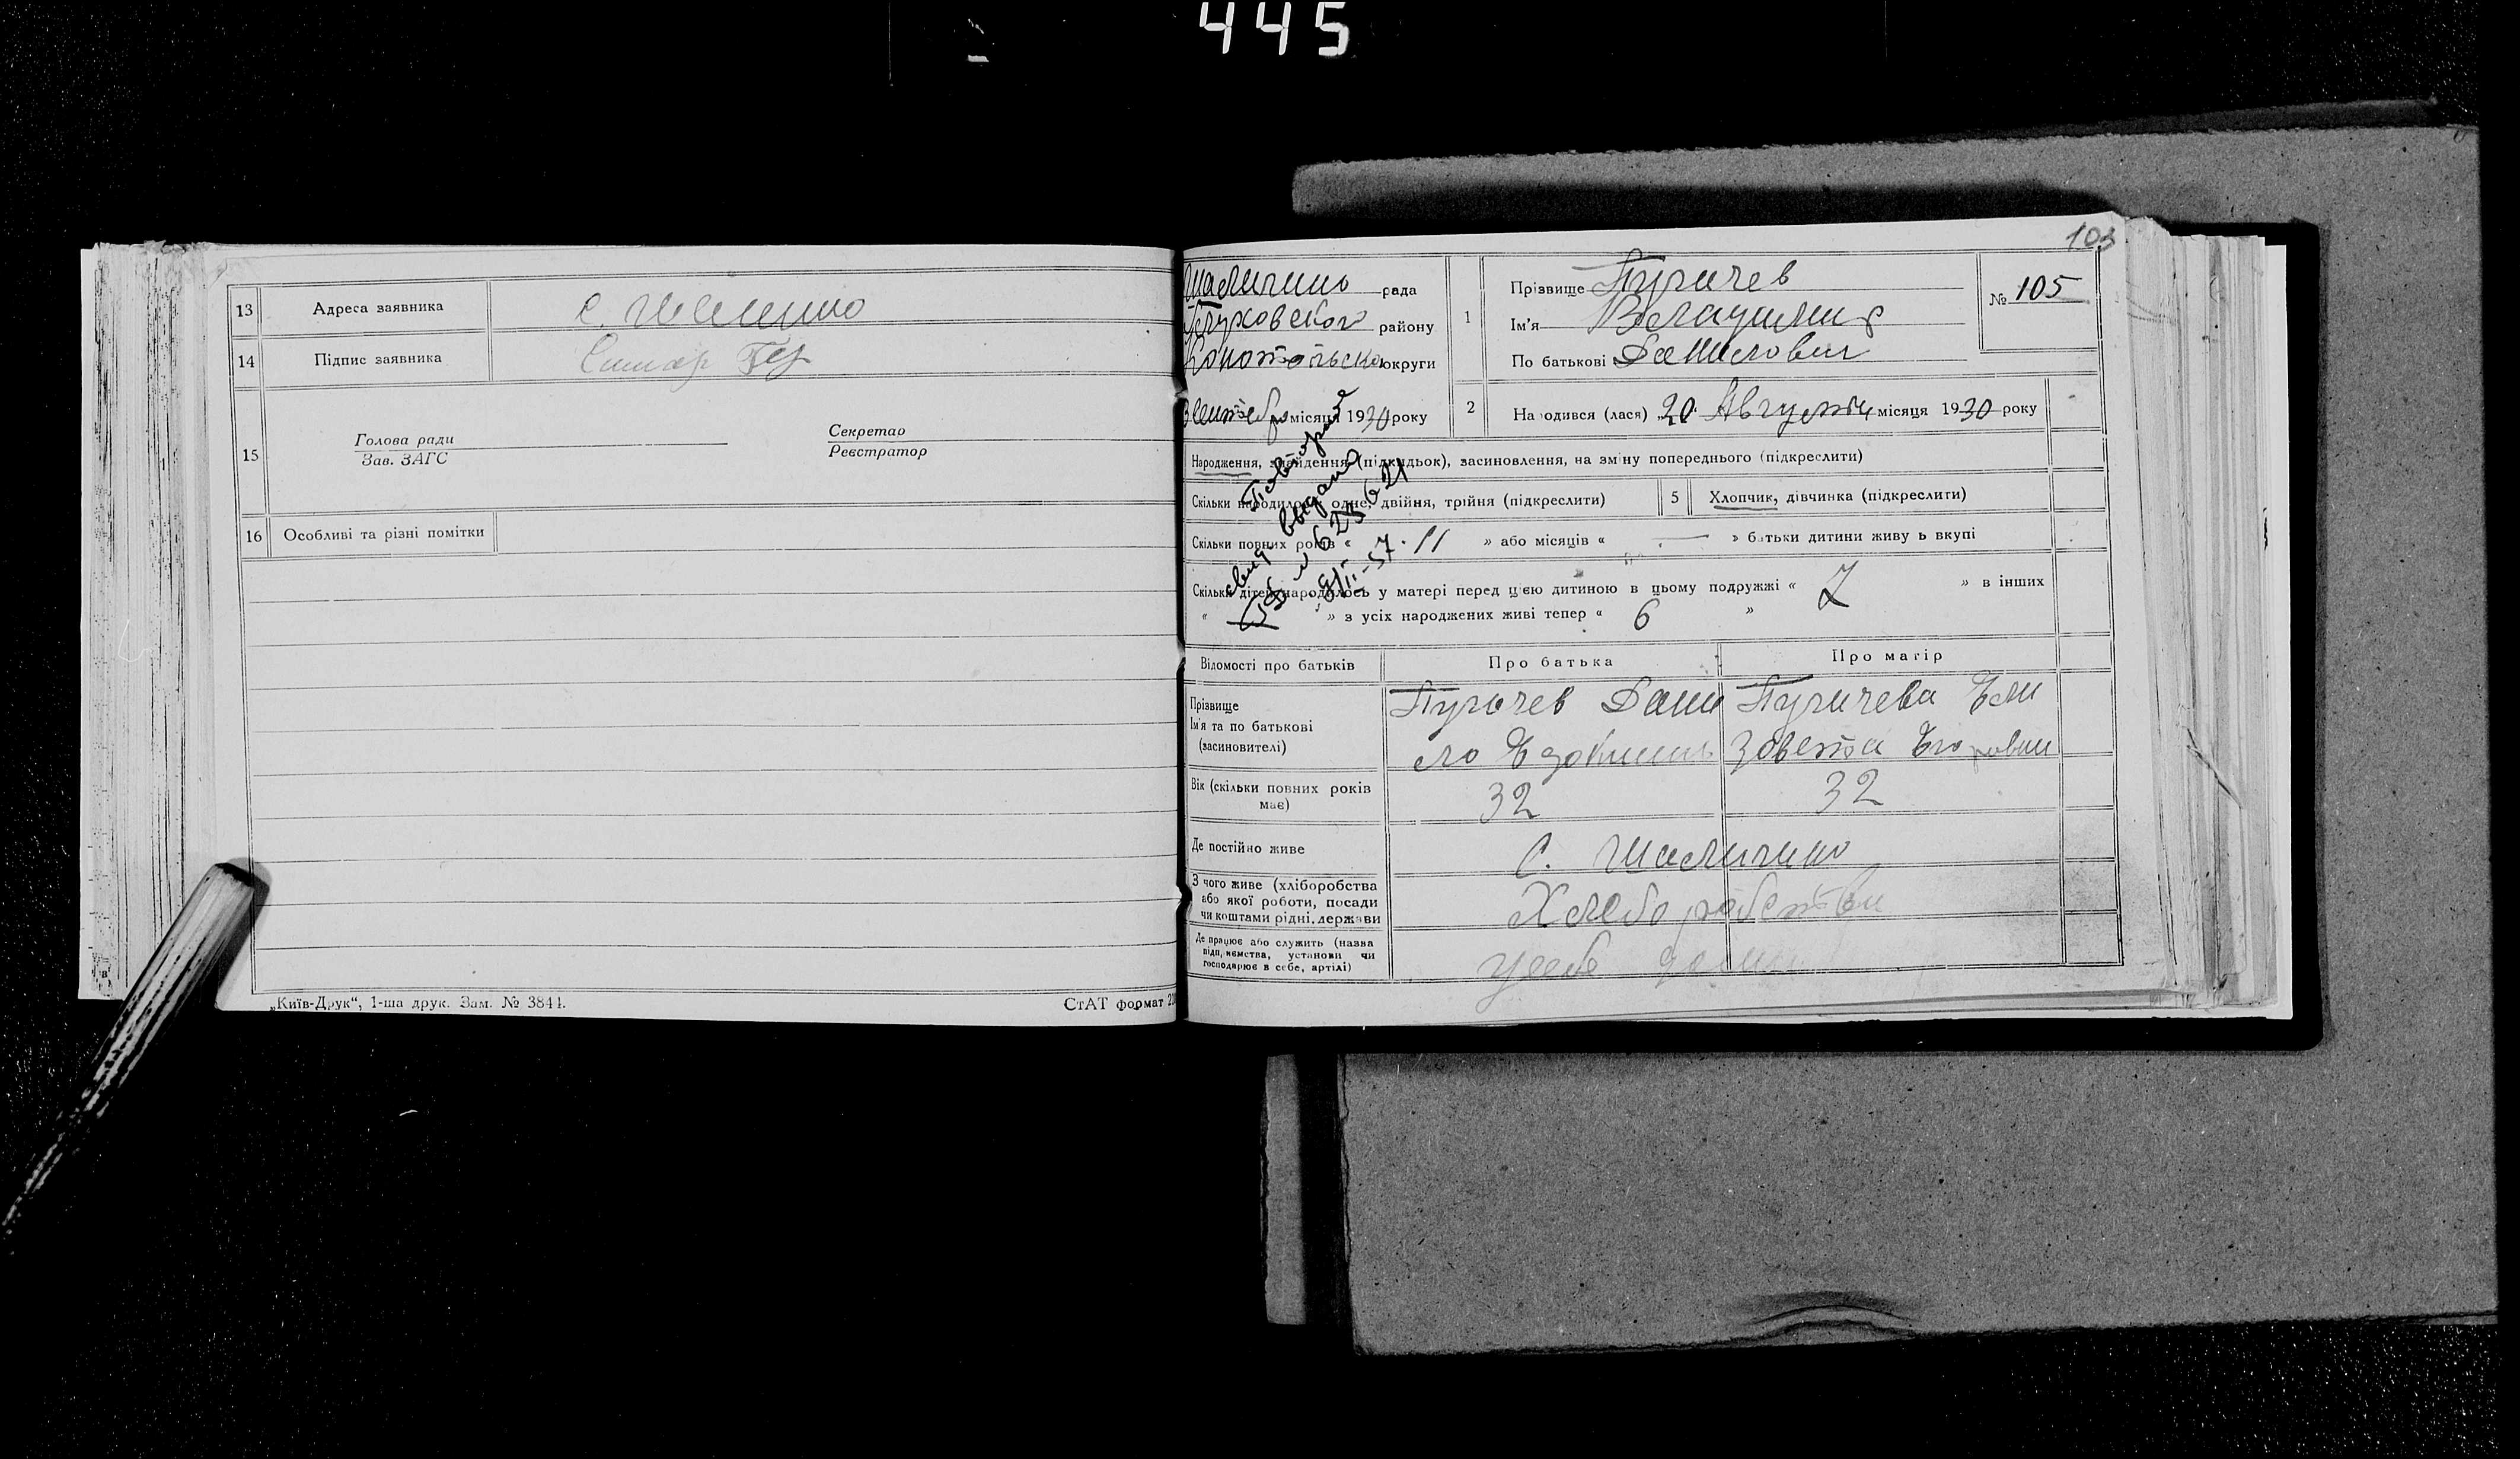 445
13 Адреса заявника с.
14 Підпис заявника
15 Голова ради Секретар
Зав. ЗАГС Реєстратор
16 Особливі та різні помітки
„Київ-Друк“, 1-ша друк. Зам. № 3844. СтАТ формат
103
Шаличино рада
Глуховского району
округи
місяця 1930 року
1 Прізвище Пугачев
Ім'я
По батькові Данилович
№ 105
2 Народився (лася) 20 Августа місяця 1930 року
Народження, знайдення (підкидьок), засиновлення, на зміну попереднього (підкреслити)
Скільки народилось одне, двійня, трійня (підкреслити) 5 Хлопчик, дівчинка (підкреслити)
Скільки повних років « 11 » або місяців « — » батьки дитини живуть вкупі
Скільки дітей народилось у матері перед цією дитиною в цьому подружжі « 7 » в інших
« » з усіх народжених живі тепер « 6 »
Повторно
свид выдано
623621
Відомості про батьків Про батька Про матір
Прізвище Ім'я та по батькові (засиновителі)
Пугачев Дани
ло
Пугачева Ели
завета Егоровна
Вік (скільки повних років має) 32 32
Де постійно живе С. Шаличино
З чого живе (хліборобства або якої роботи, посади чи коштами рідні, держави
Хлеборобством
Де працює або служить (назва підприємства, установи чи господарює в себе, артілі)